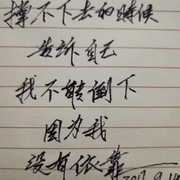 撑不下去的时候
告诉自己
我不能倒下
因为我
没有依靠
2017.9.14